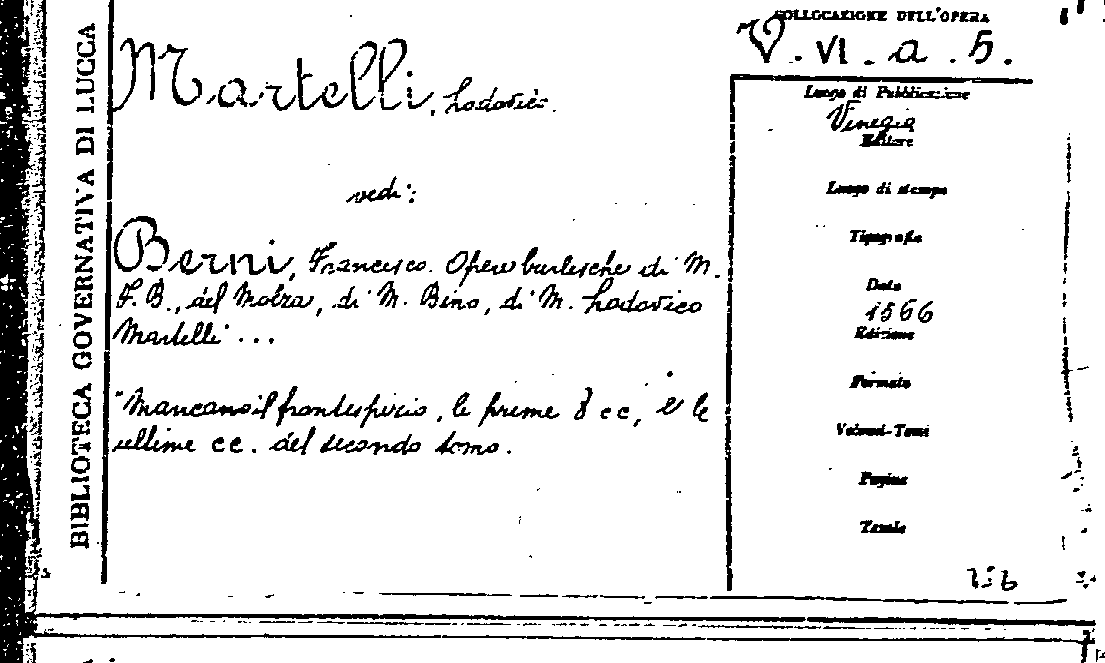 BIBLIOTECA GOVERNATIVA DI LUCCA
COLLOCAZIONE DELL'OPERA
V. VI. a. 5.
Martelli, Lodovico.
vedi:
Berni, Francesco. Opere burlesche di M.
F. B., del Molza, di M. Bino, di M. Lodovico
Martelli...
"Mancano il frontespizio, le prime 8 cc, e le
ultime cc. del secondo tomo.
Luogo di Pubblicazione
Venezia
Editore
Luogo di stampa
Tipografia
Data
1566
Edizione
Formato
Volumi-Tomi
Pagine
Tavole